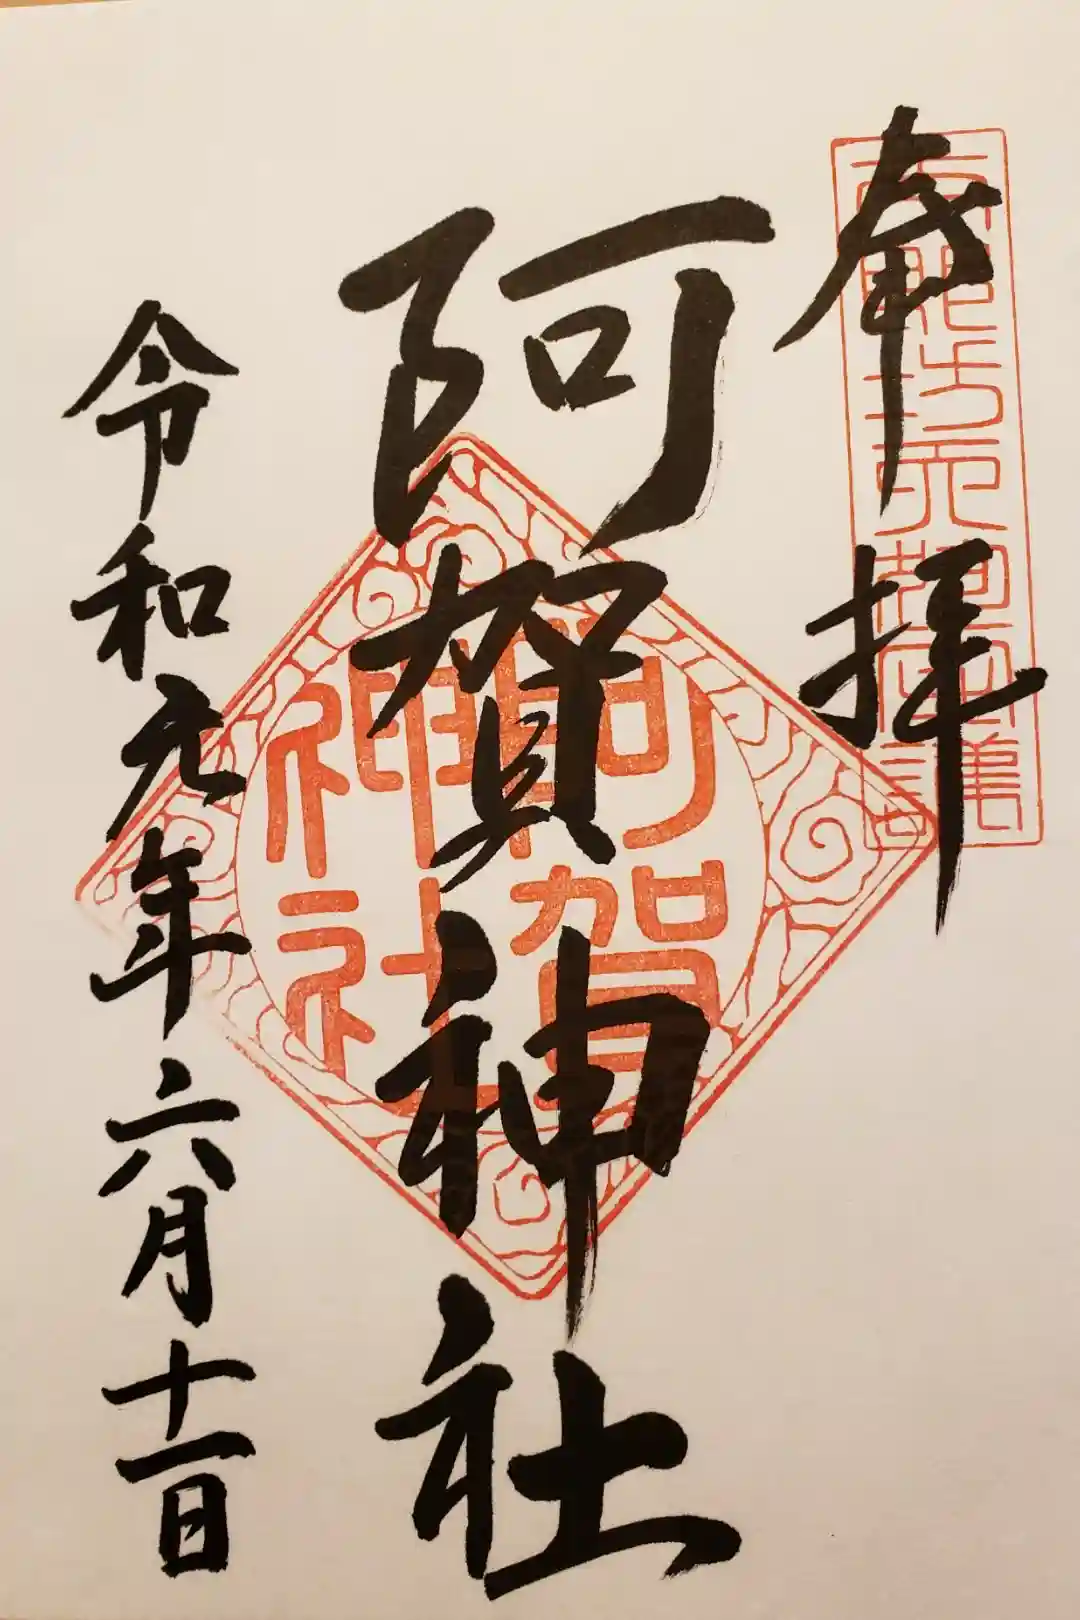 奉拝
阿賀神社
阿賀神社
令和元年六月十一日